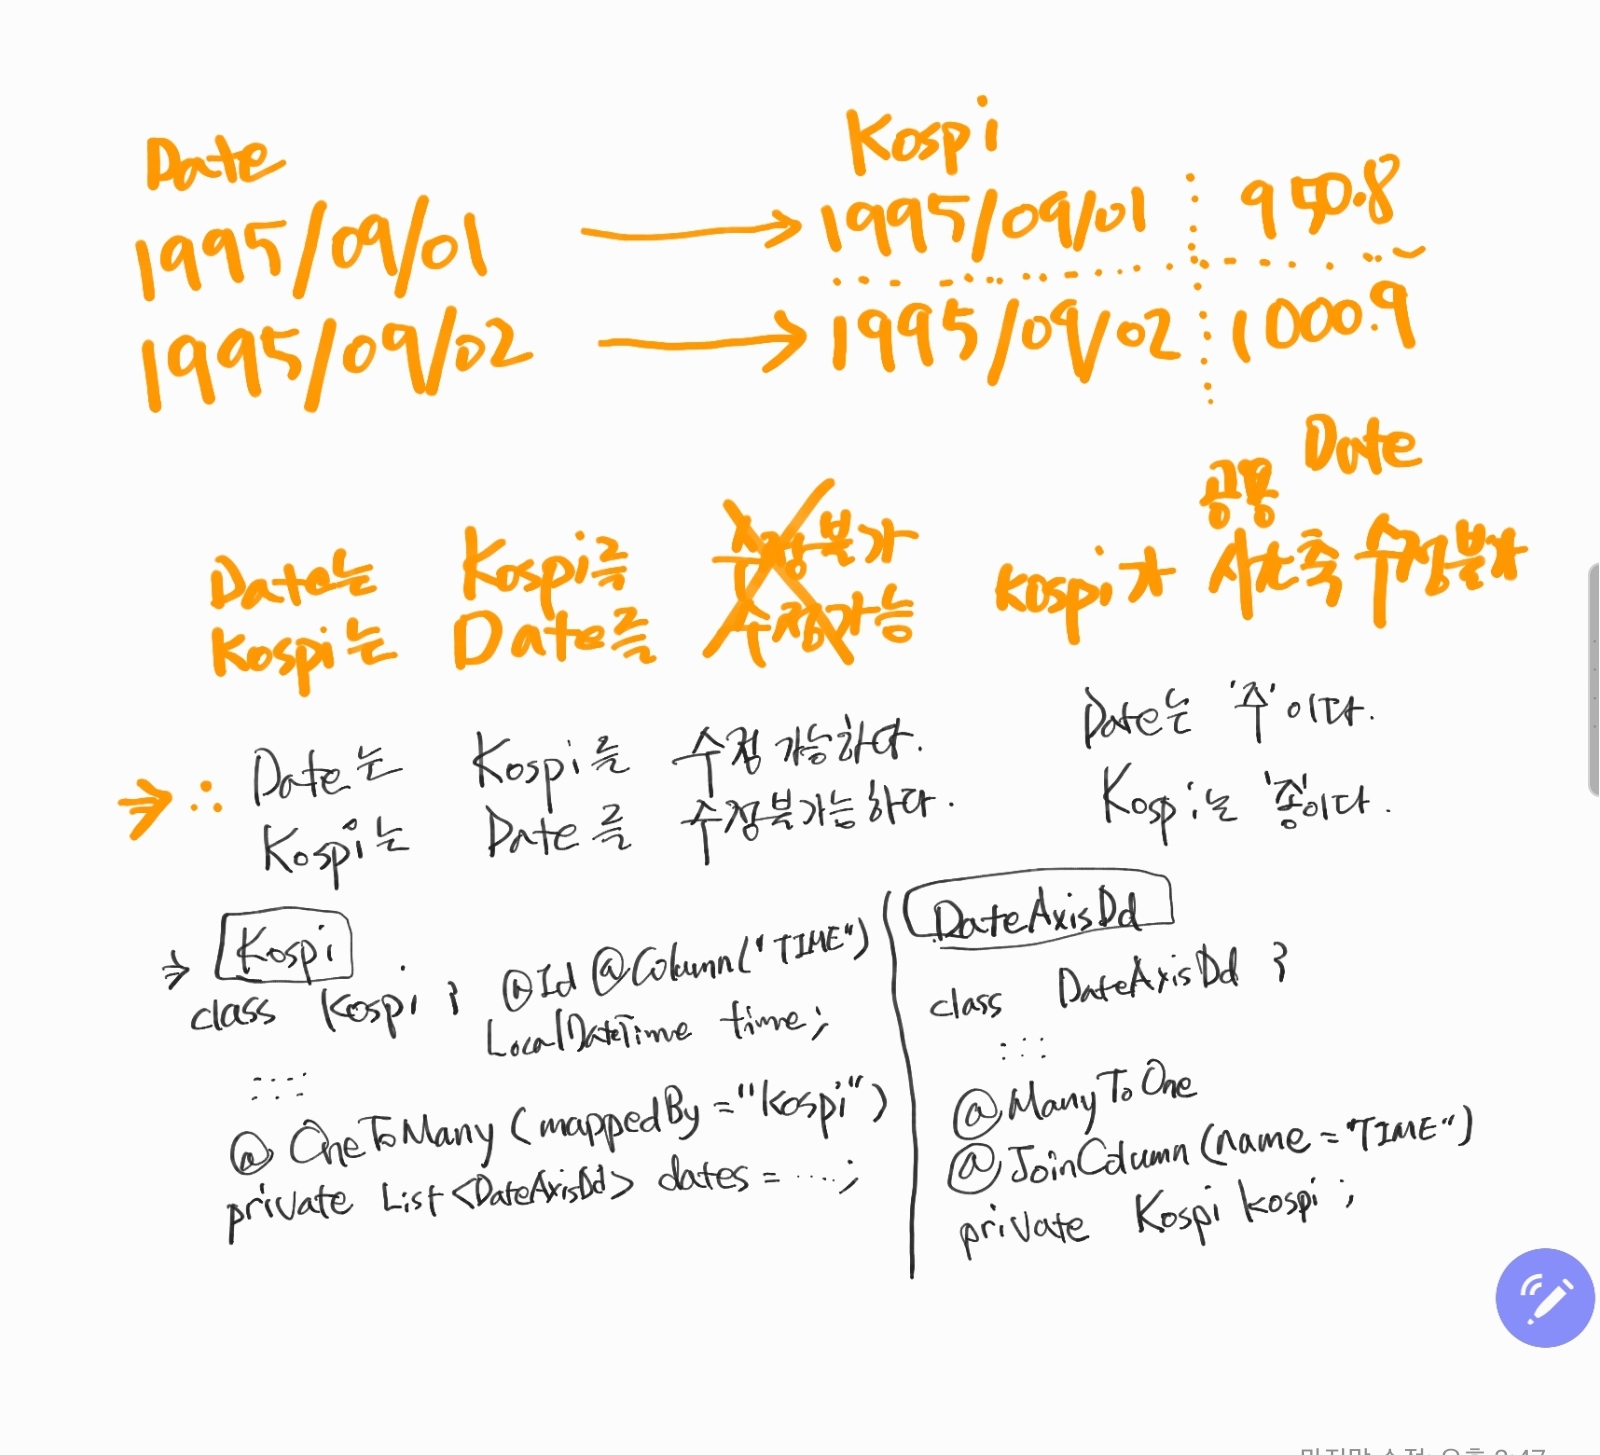 Date
Kospi
1995/09/01 → 1995/09/01 950.8
1995/09/02 → 1995/09/02 1000.9
Date는 Kospi를 수정불가
Kospi는 Date를 수정가능
Date
공통
Kospi가 시간축 수정불가
⇒ ∴ Date는 Kospi를 수정 가능하다.
Kospi는 Date를 수정불가능하다.
Date는 '주'이다.
Kospi는 '종'이다.
⇒ Kospi
class Kospi { @Id @Column("TIME")
LocalDateTime time;
@OneToMany (mappedBy = "kospi")
private List<DateAxisDd> dates = ....;
DateAxisDd
class DateAxisDd {
@ManyToOne
@JoinColumn (name = "TIME")
private Kospi kospi;